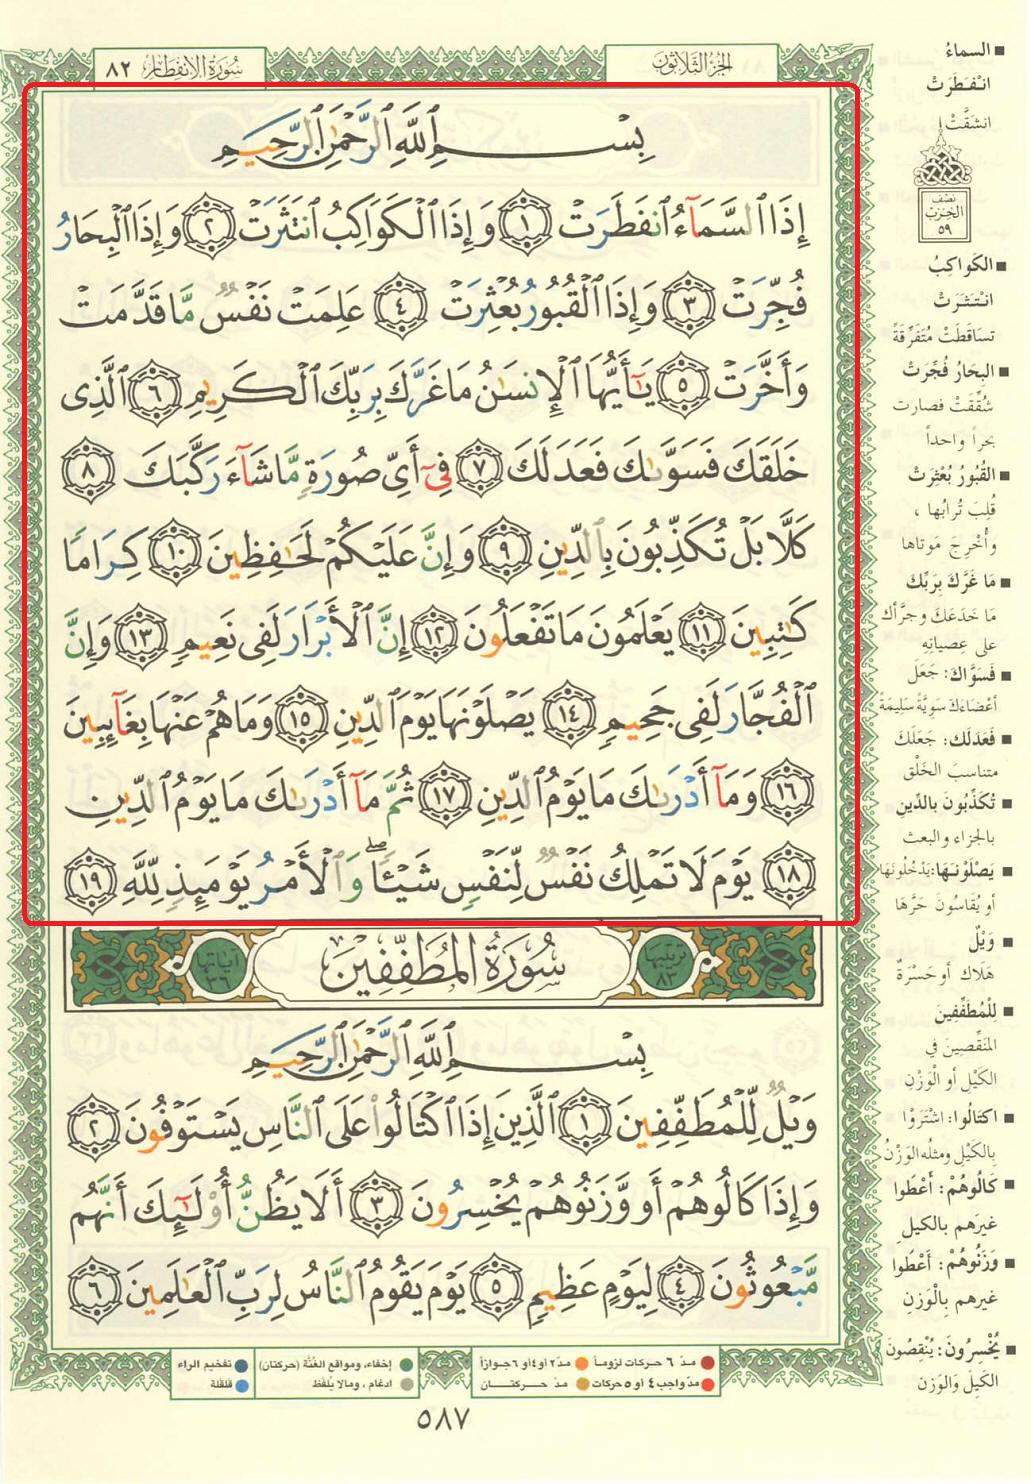 سُورَةُ الانفِطَار ٨٢
الجُزءُ الثَّلاثُونَ
بِسْمِ ٱللَّهِ ٱلرَّحْمَٰنِ ٱلرَّحِيمِ
إِذَا ٱلسَّمَآءُ ٱنفَطَرَتْ ١ وَإِذَا ٱلْكَوَاكِبُ ٱنتَثَرَتْ ٢ وَإِذَا ٱلْبِحَارُ
فُجِّرَتْ ٣ وَإِذَا ٱلْقُبُورُ بُعْثِرَتْ ٤ عَلِمَتْ نَفْسٌ مَّا قَدَّمَتْ
وَأَخَّرَتْ ٥ يَٰٓأَيُّهَا ٱلْإِنسَٰنُ مَا غَرَّكَ بِرَبِّكَ ٱلْكَرِيمِ ٦ ٱلَّذِى
خَلَقَكَ فَسَوَّىٰكَ فَعَدَلَكَ ٧ فِىٓ أَىِّ صُورَةٍ مَّا شَآءَ رَكَّبَكَ ٨
كَلَّا بَلْ تُكَذِّبُونَ بِٱلدِّينِ ٩ وَإِنَّ عَلَيْكُمْ لَحَٰفِظِينَ ١٠ كِرَامًا
كَٰتِبِينَ ١١ يَعْلَمُونَ مَا تَفْعَلُونَ ١٢ إِنَّ ٱلْأَبْرَارَ لَفِى نَعِيمٍ ١٣ وَإِنَّ
ٱلْفُجَّارَ لَفِى جَحِيمٍ ١٤ يَصْلَوْنَهَا يَوْمَ ٱلدِّينِ ١٥ وَمَا هُمْ عَنْهَا بِغَآئِبِينَ
١٦ وَمَآ أَدْرَىٰكَ مَا يَوْمُ ٱلدِّينِ ١٧ ثُمَّ مَآ أَدْرَىٰكَ مَا يَوْمُ ٱلدِّينِ
١٨ يَوْمَ لَا تَمْلِكُ نَفْسٌ لِّنَفْسٍ شَيْـًٔا ۖ وَٱلْأَمْرُ يَوْمَئِذٍ لِّلَّهِ ١٩
ترتيبها ٨٣ سُورَةُ المُطَفِّفِينَ آياتها ٣٦
بِسْمِ ٱللَّهِ ٱلرَّحْمَٰنِ ٱلرَّحِيمِ
وَيْلٌ لِّلْمُطَفِّفِينَ ١ ٱلَّذِينَ إِذَا ٱكْتَالُوا۟ عَلَى ٱلنَّاسِ يَسْتَوْفُونَ ٢
وَإِذَا كَالُوهُمْ أَو وَّزَنُوهُمْ يُخْسِرُونَ ٣ أَلَا يَظُنُّ أُو۟لَٰٓئِكَ أَنَّهُم
مَّبْعُوثُونَ ٤ لِيَوْمٍ عَظِيمٍ ٥ يَوْمَ يَقُومُ ٱلنَّاسُ لِرَبِّ ٱلْعَٰلَمِينَ ٦
■ السماءُ
انْفَطَرَتْ
انشَقَّتْ
نصف
الحزب
٥٩
■ الكَواكِبُ
انْتَثَرَتْ
تساقَطَتْ مُتَفَرِّقَةً
■ البحَارُ فُجِّرَتْ
شُقِّقَتْ فصارت
بحراً واحداً
■ القُبُورُ بُعْثِرَتْ
قُلِبَ تُرابُها ،
وأُخْرِجَ مَوتاها
■ مَا غَرَّكَ بِرَبِّكَ
مَا خَدَعَكَ وجرَّأك
على عِصيانِهِ
■ فَسَوَّاكَ: جَعَلَ
أعْضاءَكَ سَوِيَّةً سَلِيمَةً
■ فَعَدَلَك: جَعَلَكَ
متناسبَ الخَلْق
■ تُكَذِّبُونَ بالدِّينِ
بالجزاء والبعث
■ يَصْلَوْنَها: يَدْخُلُونَها
أو يُقَاسُونَ حَرَّها
■ وَيْلٌ
هَلاك أو حَسْرَةٌ
■ لِلْمُطَفِّفِينَ
المُنَقِّصِينَ في
الكَيْلِ أو الْوَزْنِ
■ اكتَالُوا: اشْتَرَوْا
بِالكَيْلِ ومثلُه الوَزْنُ
■ كَالُوهُمْ: أَعْطَوا
غيرَهم بالكيلِ
■ وَزَنُوهُمْ: أَعْطَوا
غيرهم بالْوَزنِ
■ يُخْسِرُونَ: يُنْقِصُونَ
الكَيلَ والوَزن
مدّ ٦ حركات لزوماً مدّ ٢ أو ٤ أو ٦ جوازاً
مدّ واجب ٤ أو ٥ حركات مدّ حركتان
إخفاء، ومواقع الغُنَّة (حركتان) تفخيم الراء
ادغام ، ومالا يُلفَظ قلقلة
٥٨٧